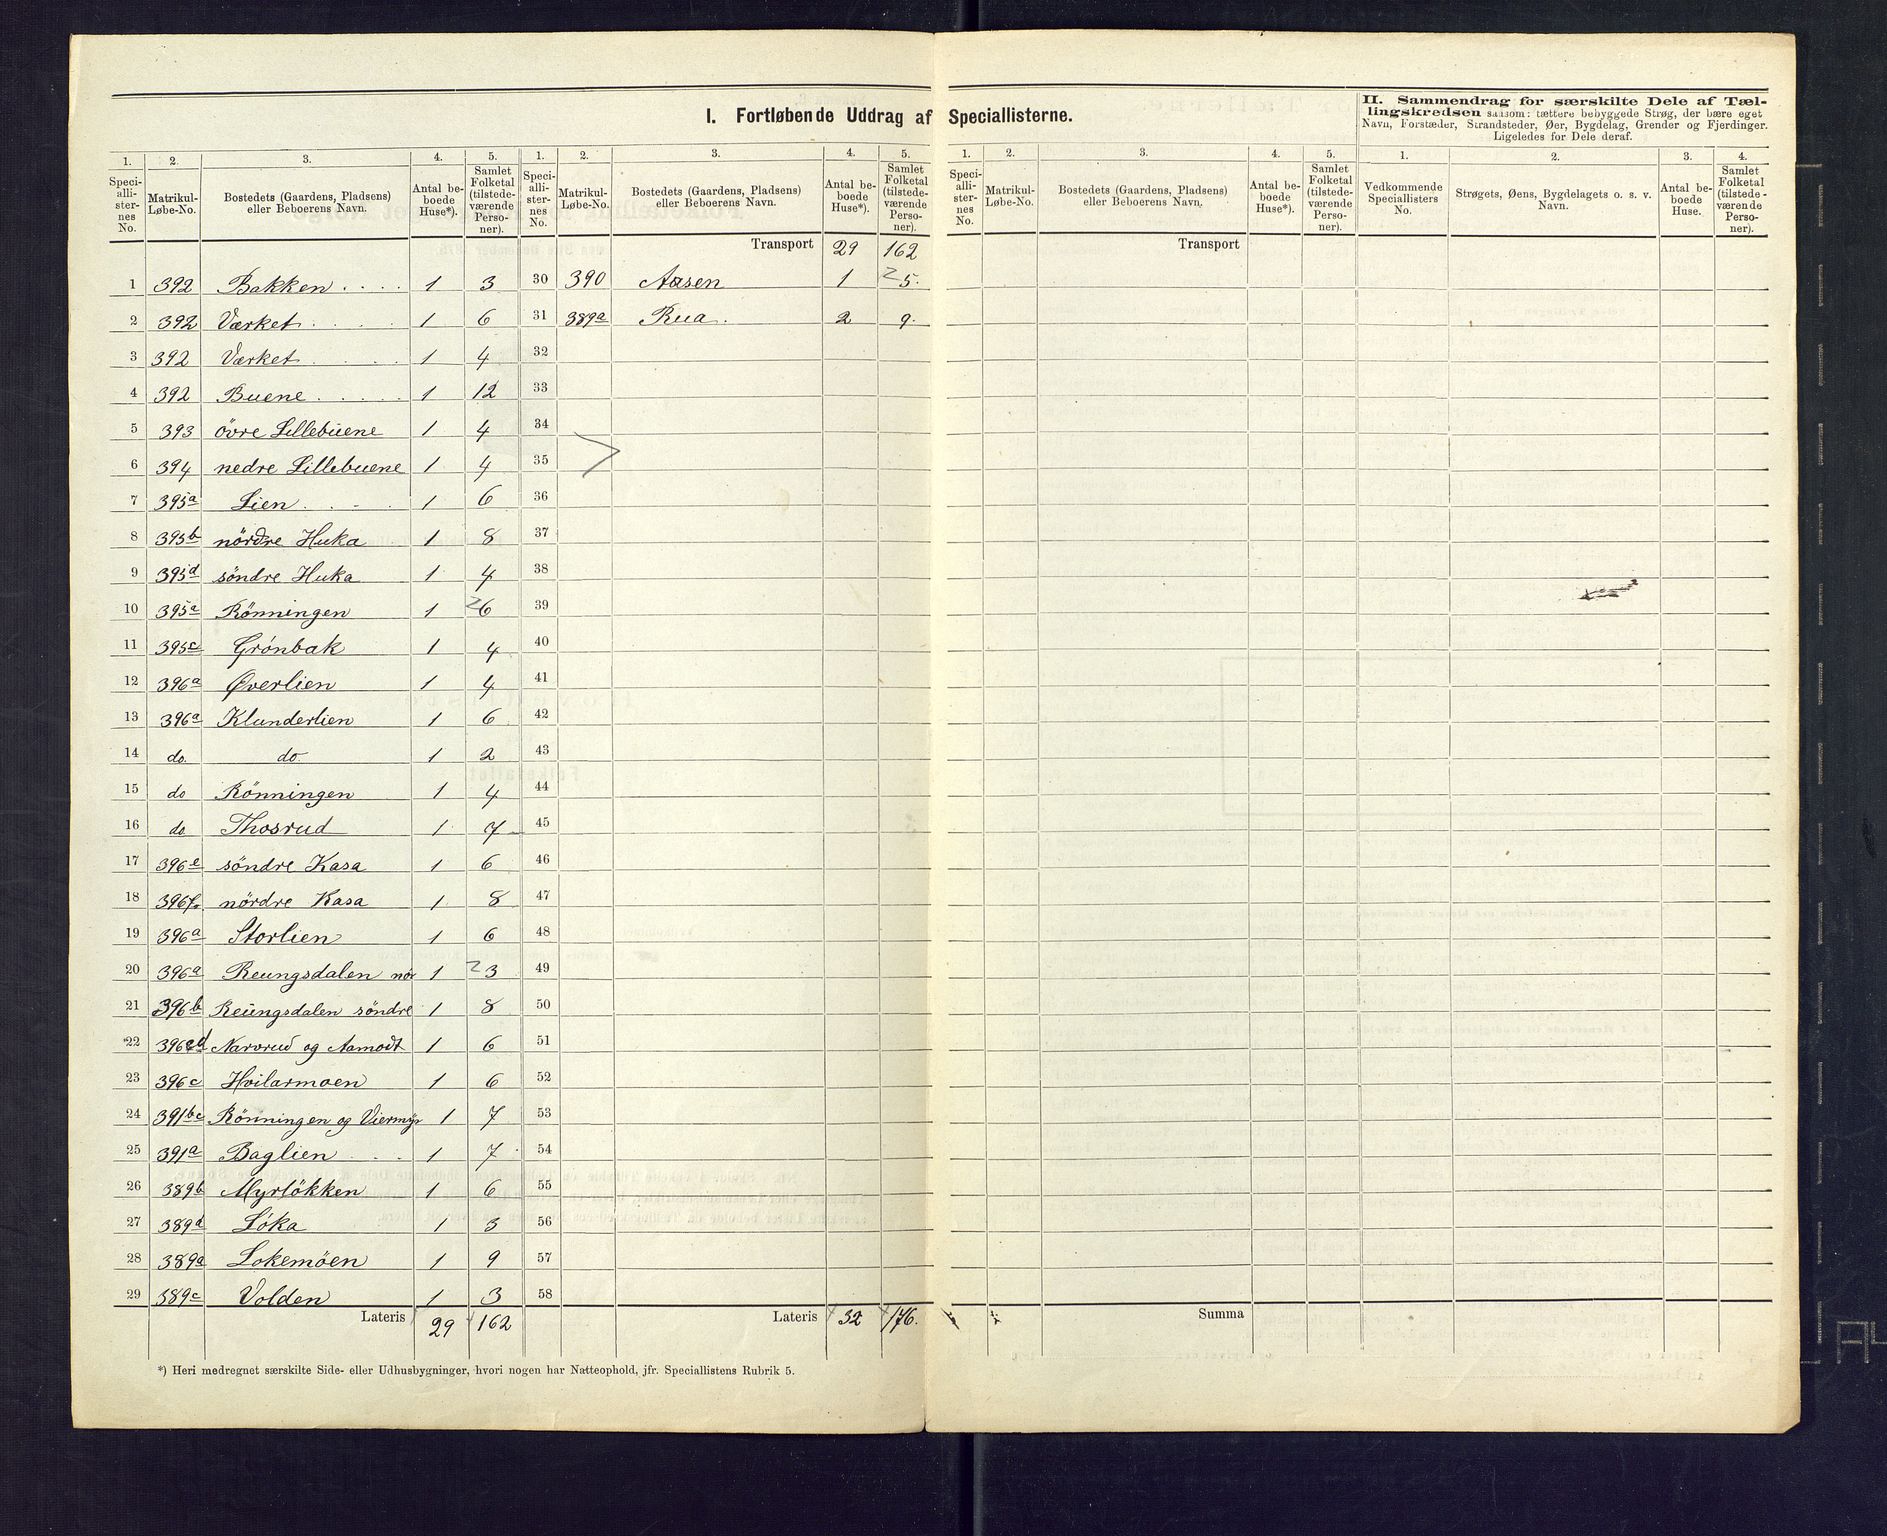 I. Fortløbende Uddrag af Speciallisterne.
II. Sammendrag for særskilte Dele af Tællingskredsen saasom: tættere bebyggede Strøg, der bære eget Navn, Forstæder, Strandsteder, Øer, Bygdelag, Grender og Fjerdinger. Ligeledes for Dele deraf.
1. 2. 3. 4. 5. 1. 2. 3. 4. 5. 1. 2. 3. 4. 5. 1. 2. 3. 4.
Speciallisternes No. Matrikul-Løbe-No. Bostedets (Gaardens, Pladsens) eller Beboerens Navn. Antal beboede Huse*). Samlet Folketal (tilstedeværende Personer).
Speciallisternes No. Matrikul-Løbe-No. Bostedets (Gaardens, Pladsens) eller Beboerens Navn. Antal beboede Huse*). Samlet Folketal (tilstedeværende Personer).
Speciallisternes No. Matrikul-Løbe-No. Bostedets (Gaardens, Pladsens) eller Beboerens Navn. Antal beboede Huse*). Samlet Folketal (tilstedeværende Personer).
Vedkommende Speciallisters No. Strøgets, Øens, Bygdelagets o. s. v. Navn. Antal beboede Huse. Samlet Folketal (tilstedeværende Personer).
Transport 29 162 Transport
1 392 Bakken . . . . 1 3 30 390 Aasen 1 2 5.
2 392 Værket . . . 1 6 31 389a Rua . 2 9.
3 392 Værket . . . 1 4 32
4 392 Buene . . . . 1 12 33
5 393 övre Lillebuene 1 4 34
6 394 nedre Lillebuene 1 4 35
7 395a Lien . . . 1 6 36
8 395b nördre Huka 1 8 37
9 395d söndre Huka 1 4 38
10 395a Rönningen 1 2 6 39
11 395c Grönbak 1 4 40
12 396a Øverlien 1 4 41
13 396a Klunderlien 1 6 42
14 do. do. 1 2 43
15 do Rönningen 1 4 44
16 do Thosrud 1 7 45
17 396e söndre Kasa 1 6 46
18 396f. nördre Kasa 1 8 47
19 396a Storlien 1 6 48
20 396a Reungsdalen nör 1 2 3 49
21 396b Reungsdalen söndre 1 8 50
22 396cd Narvrud og Aamodt 1 6 51
23 396c Hvilarmoen 1 6 52
24 391bc Rönningen og Viermyr 1 7 53
25 391a Baglien . . . 1 7 54
26 389b Myrlökken 1 6 55
27 389d Löka 1 3 56
28 389a Lokemöen 1 9 57
29 389c Volden 1 3 58
Lateris 29 162 Lateris 32 176. Summa
*) Heri medregnet særskilte Side- eller Udhusbygninger, hvori nogen har Natteophold, jfr. Speciallistens Rubrik 5.